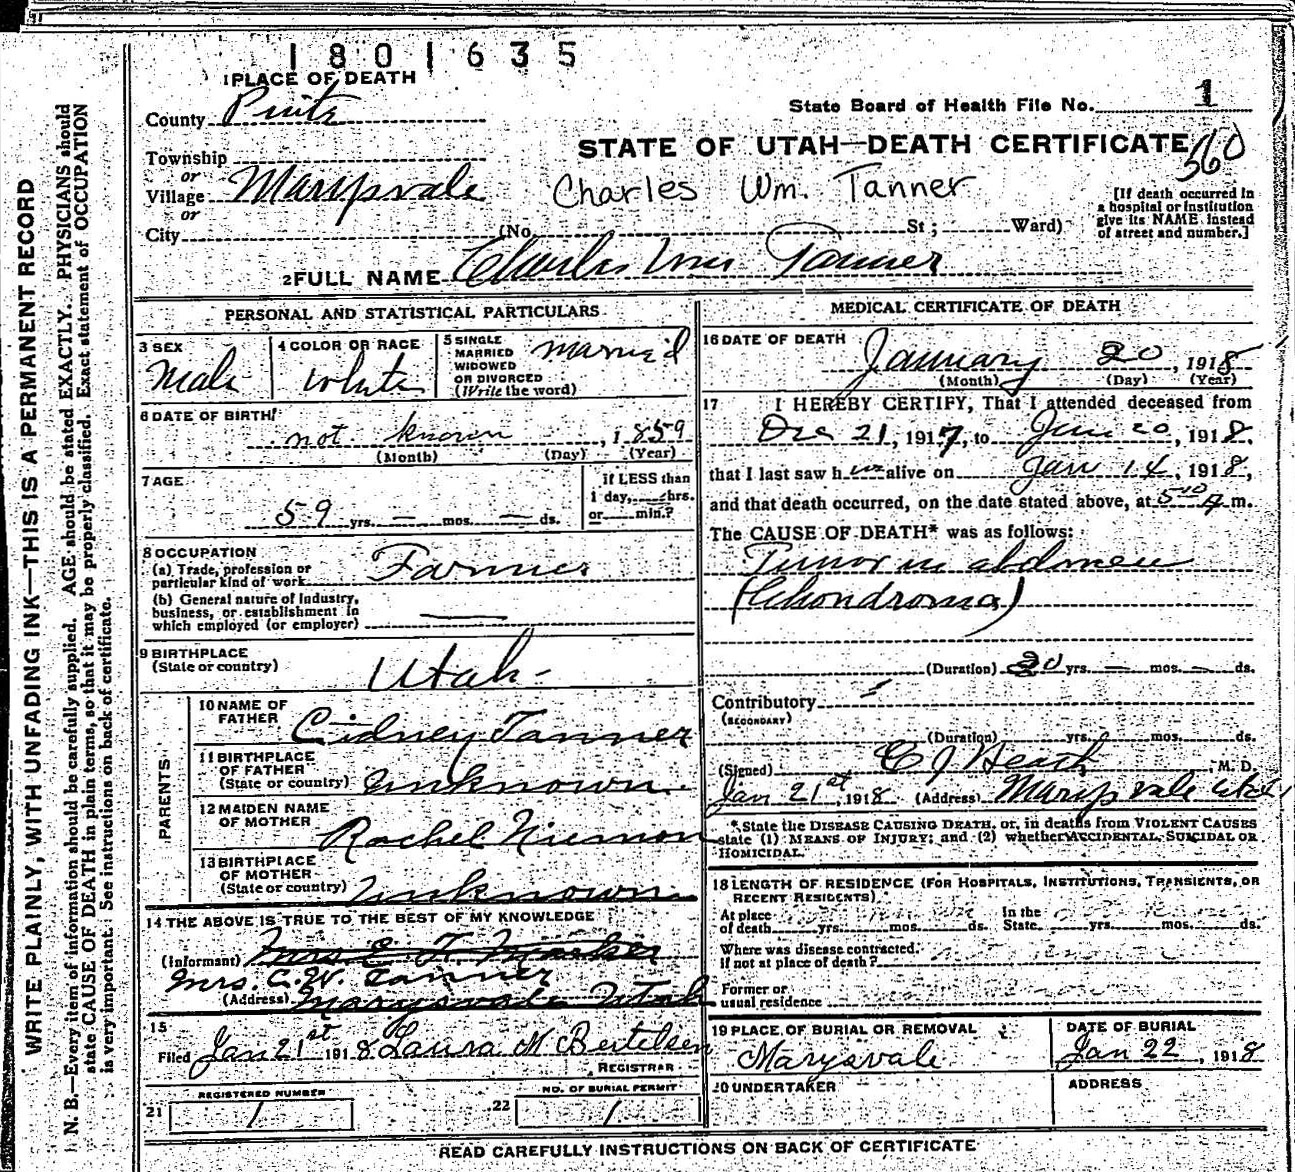 1801635
1 PLACE OF DEATH
County Piute
State Board of Health File No. 1
STATE OF UTAH—DEATH CERTIFICATE
560
Township
or
Village Marysvale
or
City
Charles Wm. Tanner
[If death occurred in
a hospital or institution
give its NAME instead
of street and number.]
(No. St; Ward)
2 FULL NAME Charles Wm Tanner
PERSONAL AND STATISTICAL PARTICULARS
3 SEX
Male
4 COLOR OR RACE
White
5 SINGLE
MARRIED
WIDOWED
OR DIVORCED
(Write the word)
married
6 DATE OF BIRTH
not known, 1859
(Month) (Day) (Year)
7 AGE
59 yrs. — mos. — ds.
If LESS than
1 day, hrs.
or min.?
8 OCCUPATION
(a) Trade, profession or
particular kind of work
Farmer
(b) General nature of industry,
business, or establishment in
which employed (or employer)
—
9 BIRTHPLACE
(State or country)
Utah
PARENTS
10 NAME OF
FATHER
Cidney Tanner
11 BIRTHPLACE
OF FATHER
(State or country)
unknown
12 MAIDEN NAME
OF MOTHER
Rachel Niemon
13 BIRTHPLACE
OF MOTHER
(State or country)
unknown
14 THE ABOVE IS TRUE TO THE BEST OF MY KNOWLEDGE
(Informant)
Mrs. C. W. Tanner
(Address) Marysvale Utah
15
Filed Jan 21st 1918 Laura M Bertelsen
REGISTRAR
REGISTERED NUMBER
21 1
NO. OF BURIAL PERMIT
22 1
MEDICAL CERTIFICATE OF DEATH
16 DATE OF DEATH
January 20, 1918
(Month) (Day) (Year)
17 I HEREBY CERTIFY, That I attended deceased from
Dec 21, 1917, to Jan 20, 1918,
that I last saw him alive on Jan 14, 1918,
and that death occurred, on the date stated above, at 5 10 A m.
The CAUSE OF DEATH* was as follows:
Tumor in abdomen
(Chondroma)
(Duration) 20 yrs. — mos. — ds.
Contributory
(SECONDARY)
(Duration) yrs. mos. ds.
(Signed) C J Heath, M. D.
Jan 21st, 1918 (Address) Marysvale Utah
*State the DISEASE CAUSING DEATH, or, in deaths from VIOLENT CAUSES
state (1) MEANS OF INJURY; and (2) whether ACCIDENTAL, SUICIDAL OR
HOMICIDAL.
18 LENGTH OF RESIDENCE (FOR HOSPITALS, INSTITUTIONS, TRANSIENTS, OR
RECENT RESIDENTS)
At place
of death yrs. mos. ds.
In the
State yrs. mos. ds.
Where was disease contracted
if not at place of death?
Former or
usual residence
19 PLACE OF BURIAL OR REMOVAL
Marysvale
DATE OF BURIAL
Jan 22, 1918
20 UNDERTAKER
ADDRESS
READ CAREFULLY INSTRUCTIONS ON BACK OF CERTIFICATE
WRITE PLAINLY, WITH UNFADING INK—THIS IS A PERMANENT RECORD
N. B.—Every item of information should be carefully supplied. AGE should be stated EXACTLY. PHYSICIANS should
state CAUSE OF DEATH in plain terms, so that it may be properly classified. Exact statement of OCCUPATION
is very important. See instructions on back of certificate.